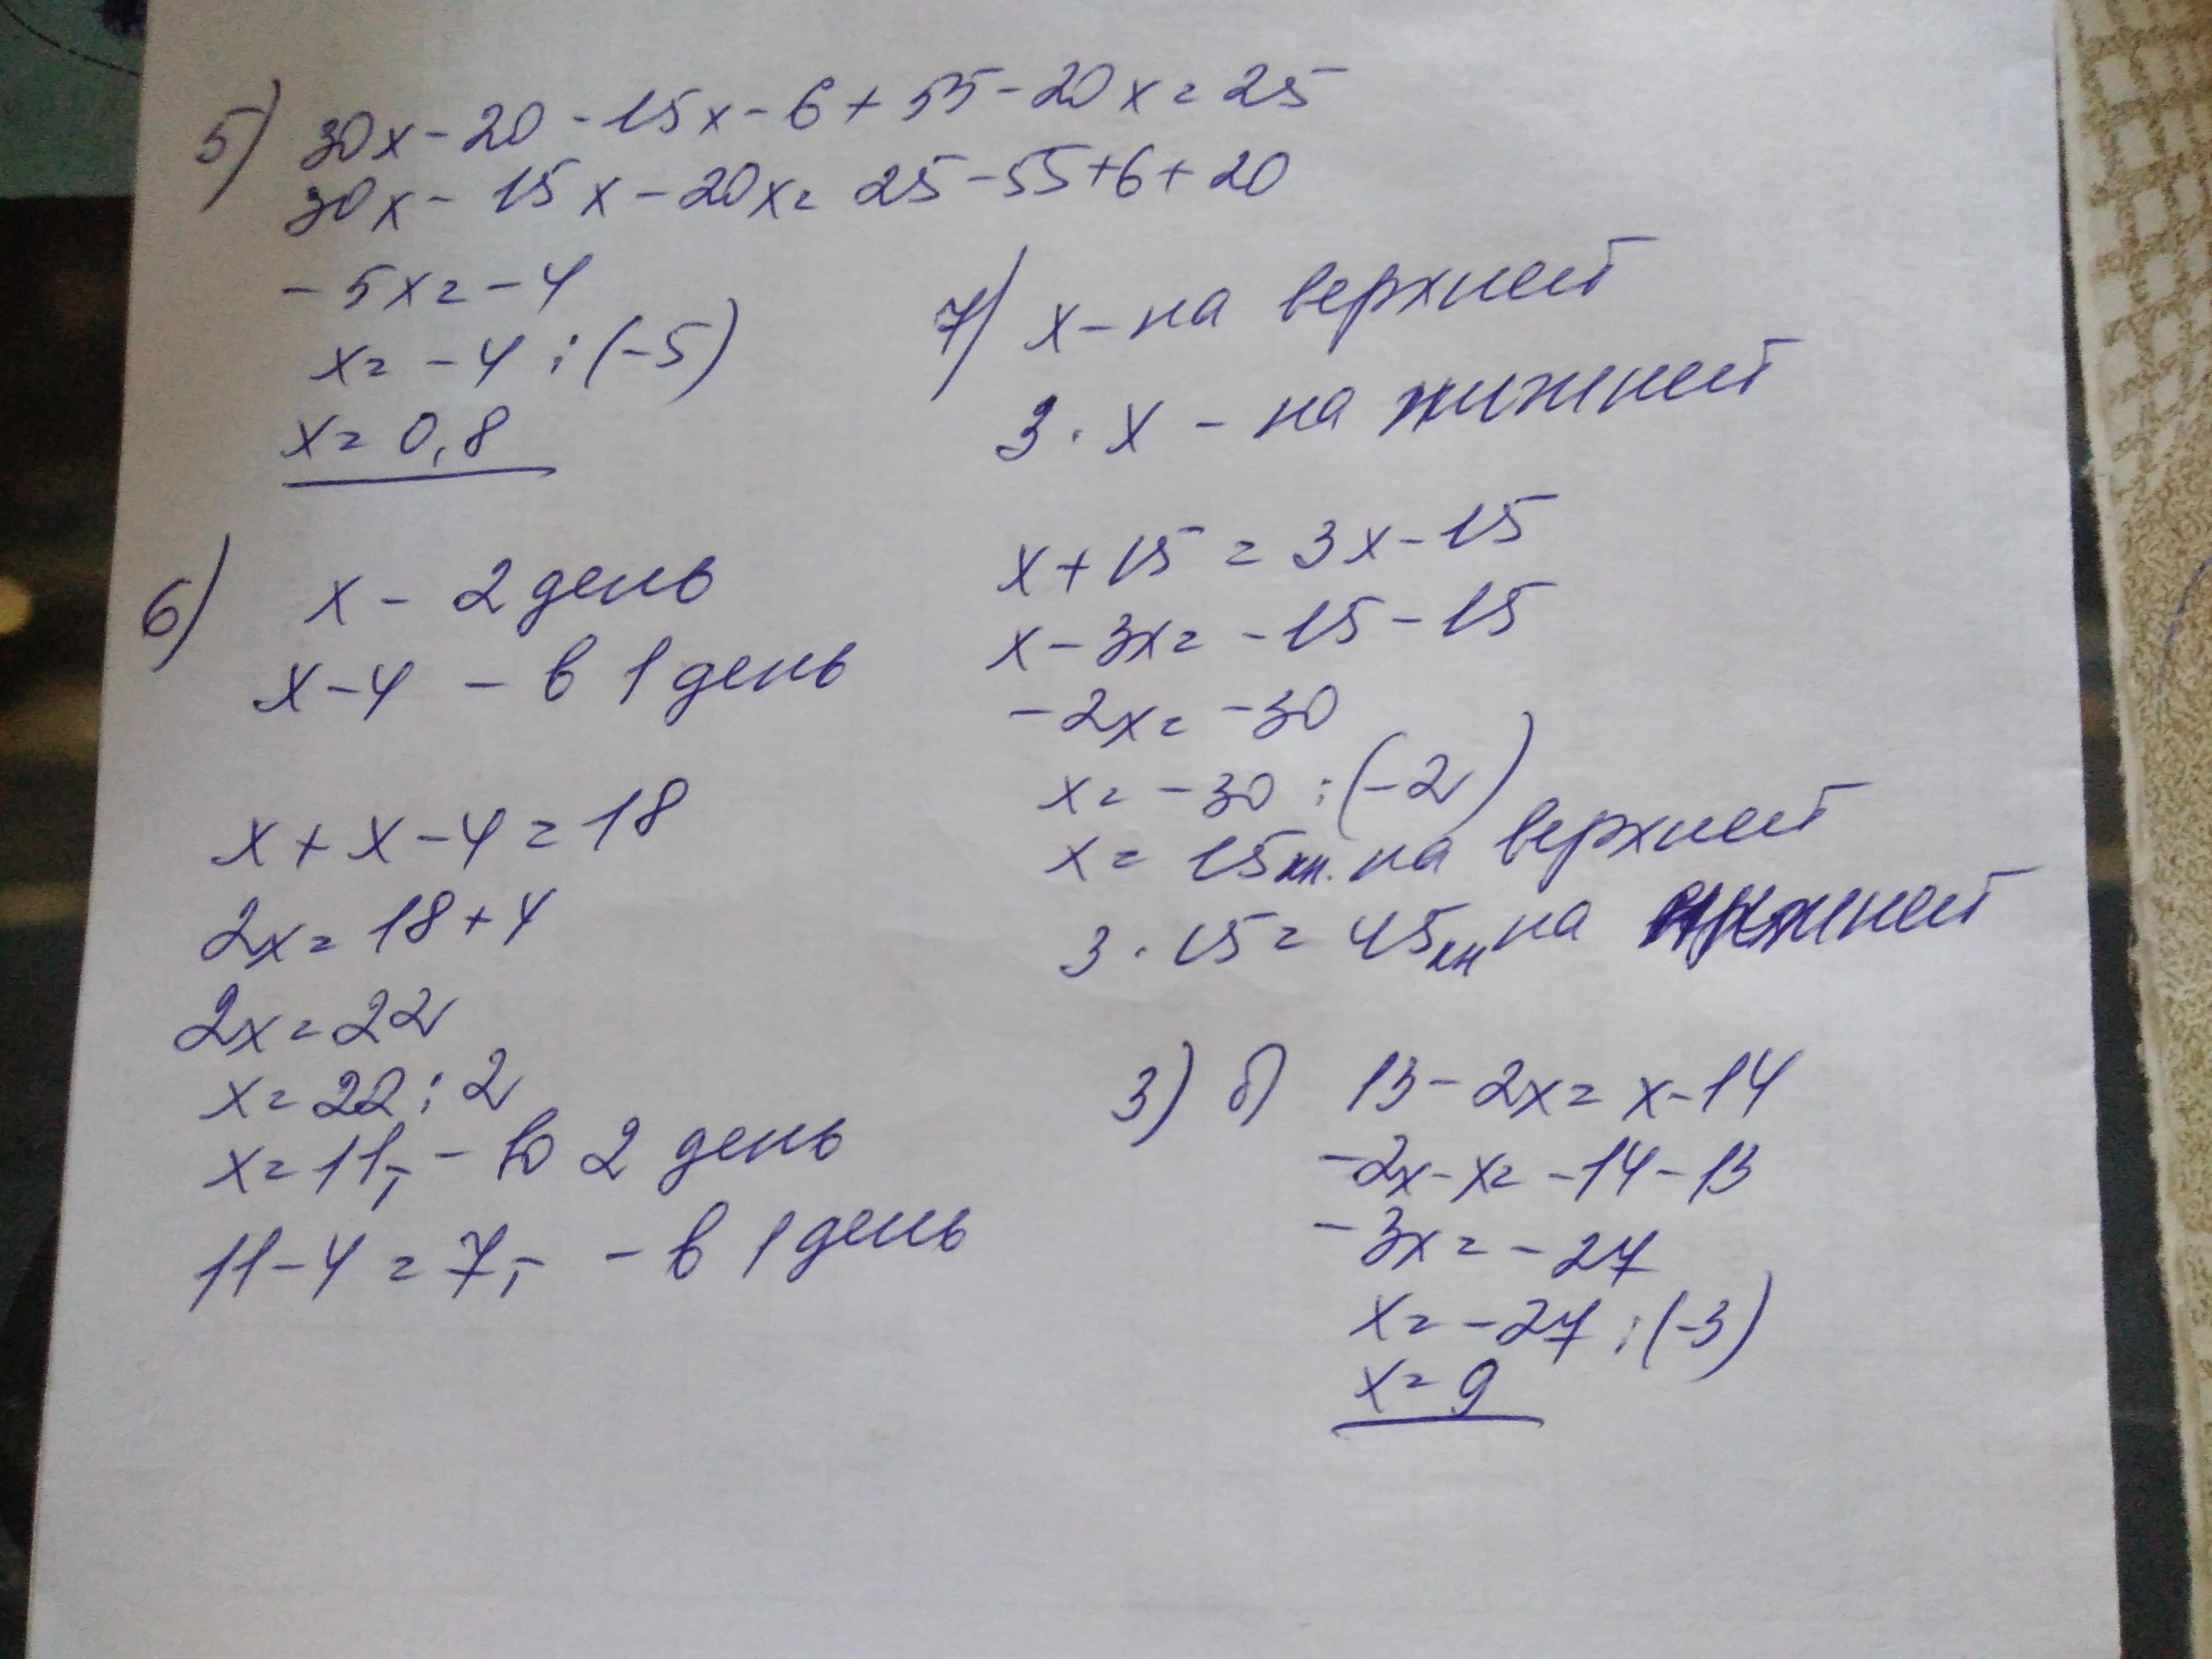 5) 30x - 20 - 15x - 6 + 55 - 20x = 25
30x - 15x - 20x = 25 - 55 + 6 + 20
- 5x = - 4
x = - 4 : (-5)
x = 0,8
6) x - 2 день
x - 4 - в 1 день
x + x - 4 = 18
2x = 18 + 4
2x = 22
x = 22 : 2
x = 11,- - во 2 день
11 - 4 = 7,- - в 1 день
7) x - на верхней
3 · x - на нижней
x + 15 = 3x - 15
x - 3x = - 15 - 15
- 2x = - 30
x = - 30 : (-2)
x = 15 кн. на верхней
3 · 15 = 45 кн на нижней
3) б) 13 - 2x = x - 14
- 2x - x = - 14 - 13
- 3x = - 27
x = - 27 : (-3)
x = 9